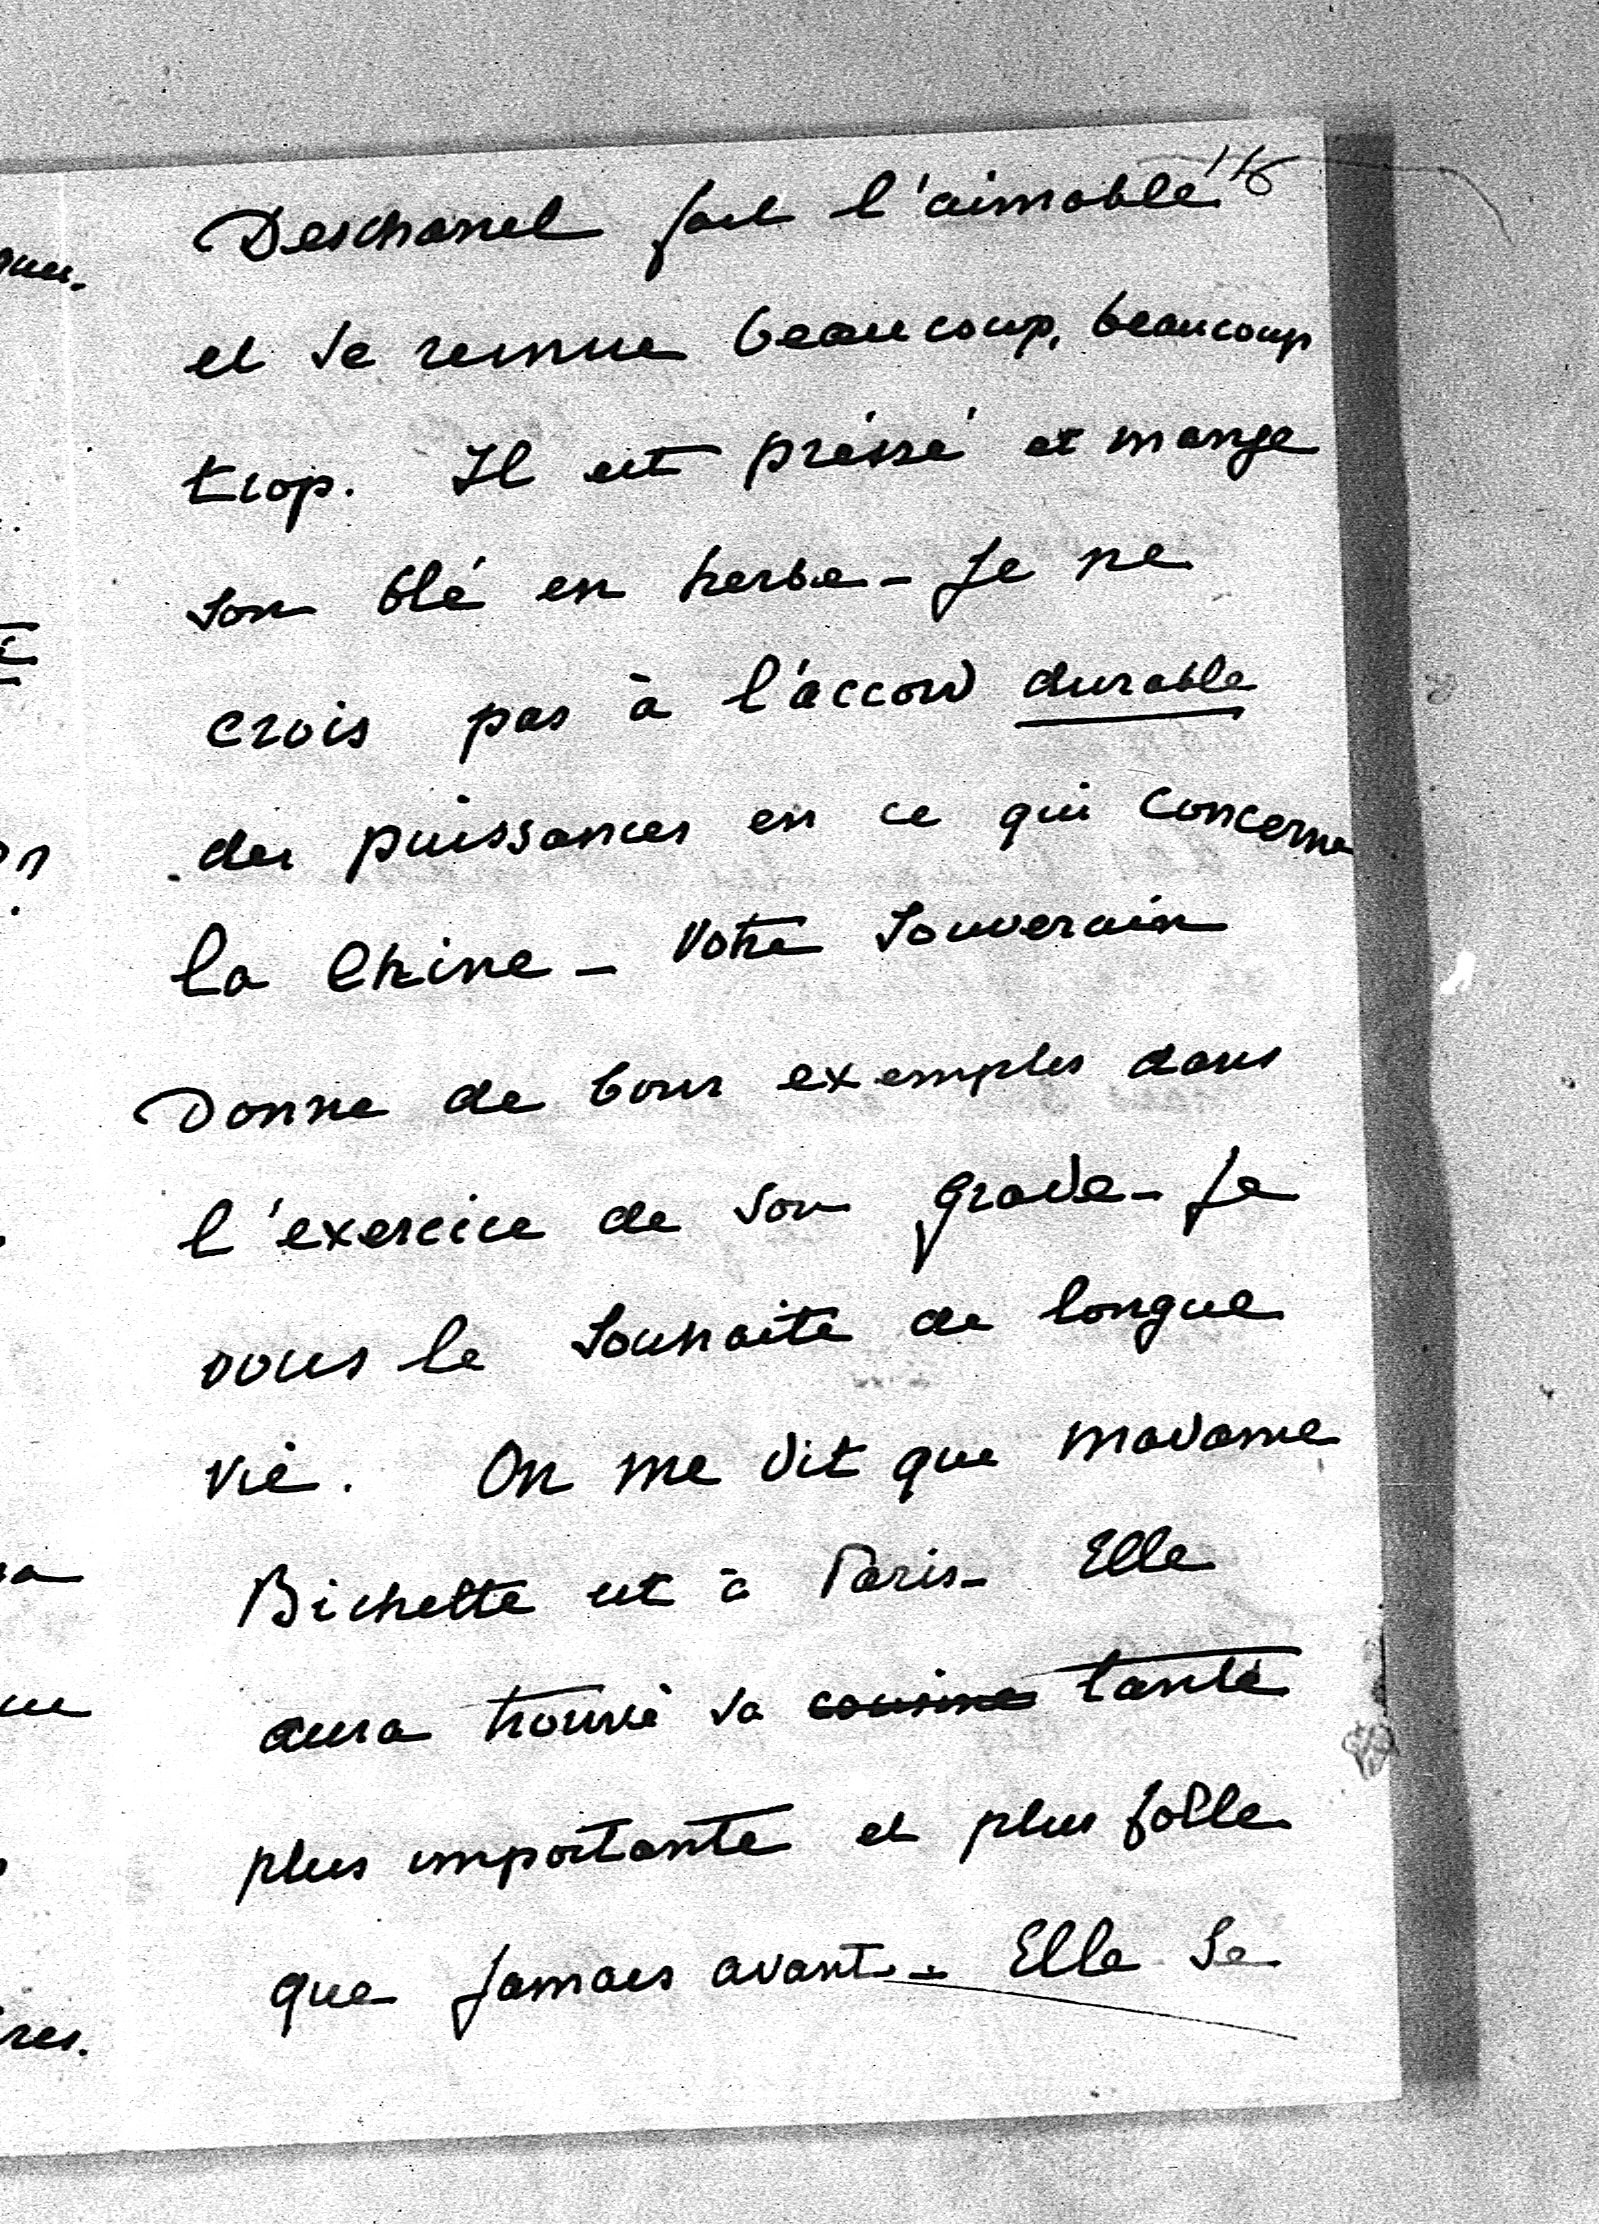 Deschanel fait l'aimable
et se remue beaucoup, beaucoup
trop. Il est préssé et mange
son blé en herbe - Je ne
crois pas à l'accord durable
des puissances en ce qui concerne
la Chine - Votre Souverain
Donne de bons exemples dans
l'exercice de son grade - Je
vous le souhaite de longue
vie. On me dit que madame
Bichette est à Paris - Elle
aura trouvé sa cousine tante
plus importante et plus folle
que jamais avant - Elle se